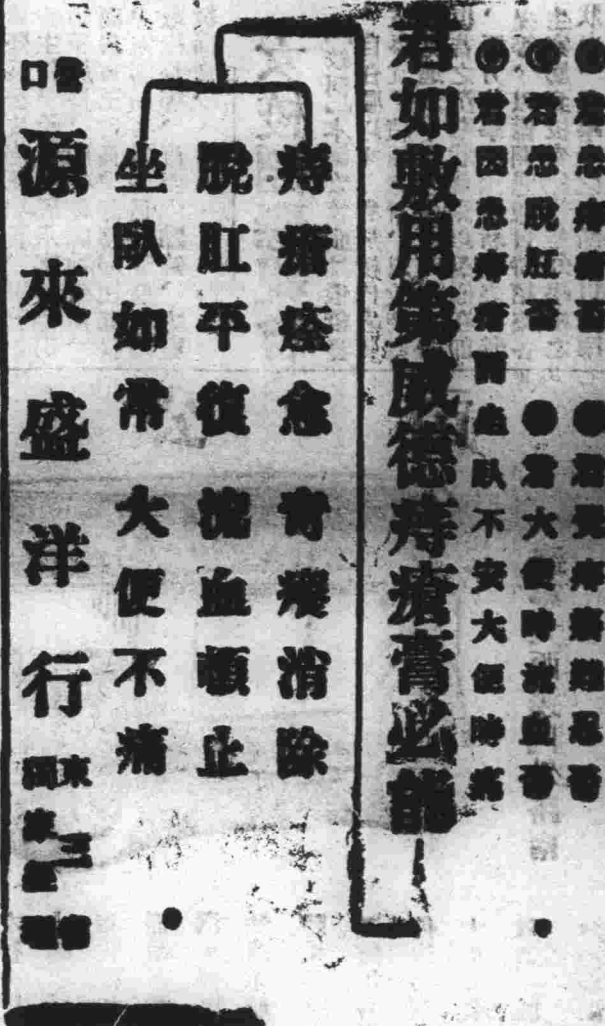 ◉君患痔瘡否 ●君覺痔癢難忍否
◉君患脫肛否 ●君大便時流血否
◉君因患痔瘡而坐臥不安大便時痛
君如敷用第威德痔瘡膏必能
痔瘡痊愈 奇癢消除
脫肛平復 流血頓止
坐臥如常 大便不痛
營口 源來盛洋行 東三省 獨家經理